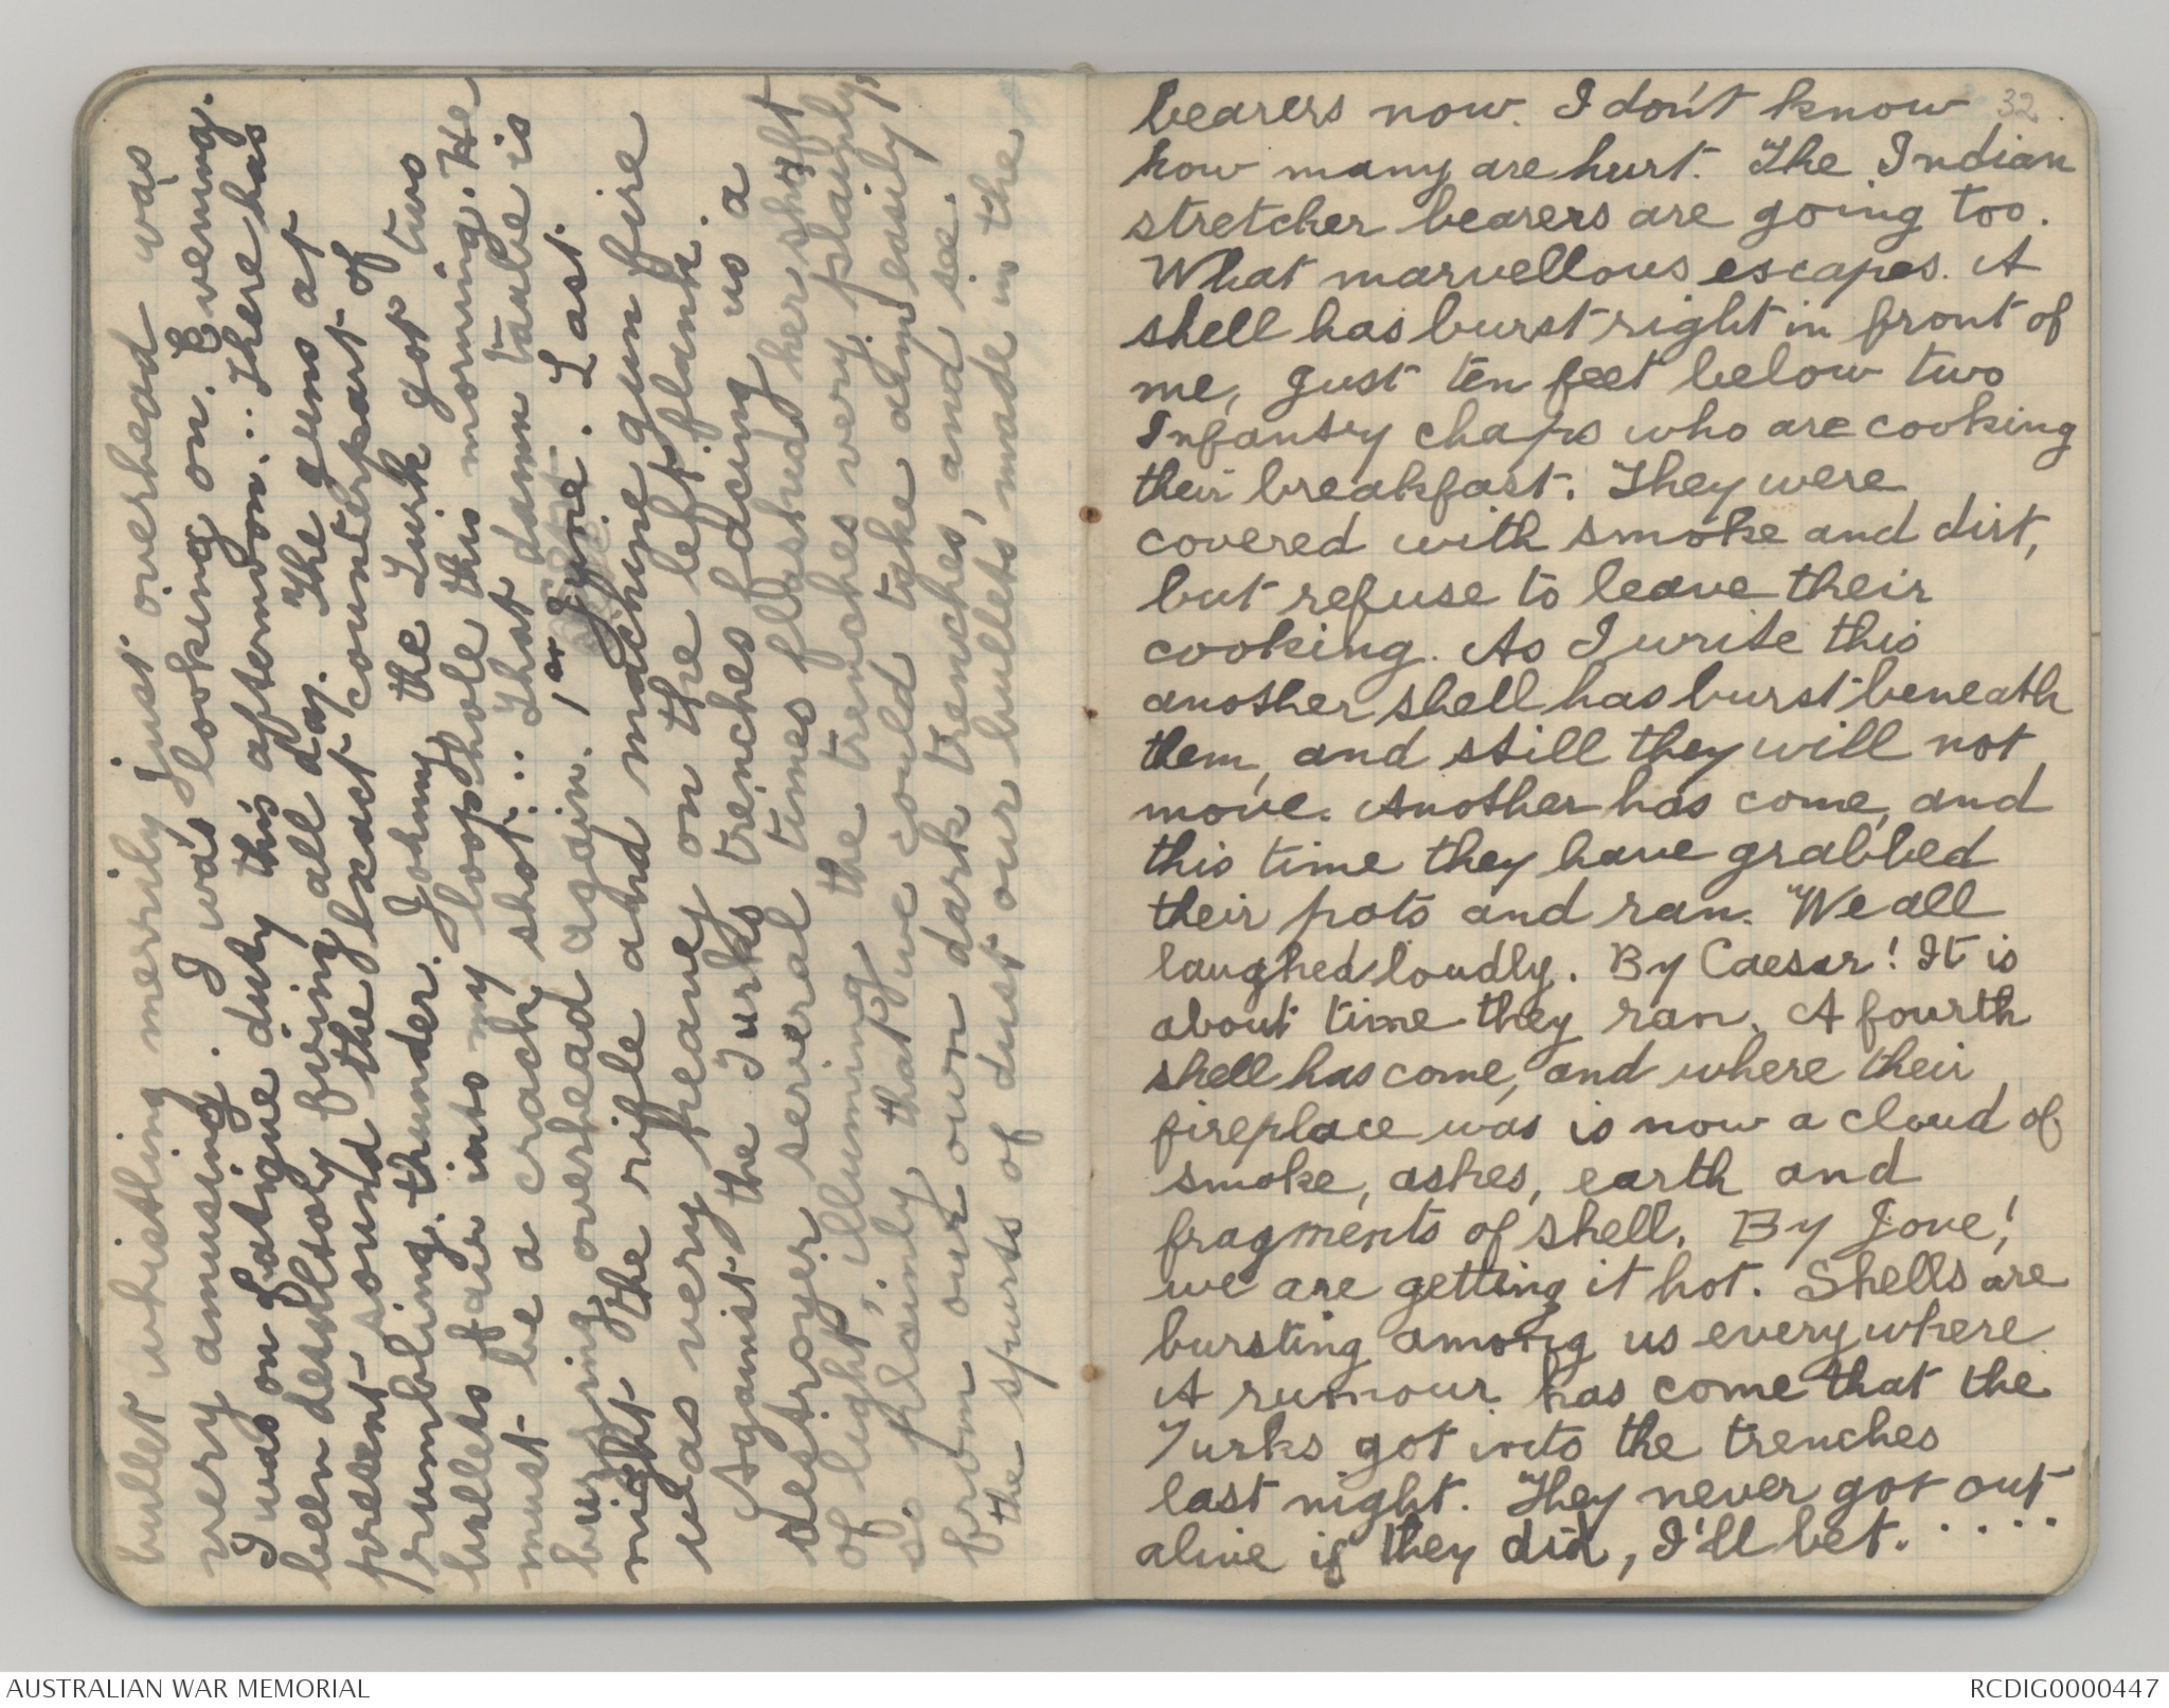 bullet whistling merrily just overhead was
very amusing. I was looking on. Evening.
I was on fatigue duty this afternoon... There has
been desultory firing all day. The guns at
present sound the exact counterpart of
rumbling thunder. Johnny the Turk got two
bullets fair into my loophole this morning. He
must be a crack shot... That damn taube is
buzzing overhead again. 1st June. Last
night the rifle and machine gun fire
was very heavy on the left flank.
Against the Turks trenches facing us a
destroyer several times flashed her shaft
of light, illuming the trenches very plainly,
so plainly that we could take aim easily
from our own dark trenches, and see
the spurts of dust our bullets made in the
32.
bearers now. I don't know
how many are hurt. The Indian
stretcher bearers are going too.
What marvellous escapes. A
shell has burst right in front of
me, just ten feet below two
Infantry chaps who are cooking
their breakfast. They were
covered with smoke and dirt,
but refuse to leave their
cooking. As I write this
another shell has burst beneath
them, and still they will not
move. Another has come, and
this time they have grabbed
their pots and ran. We all
laughed loudly. By Caesar! It is
about time they ran. A fourth
shell has come, and where their
fireplace was is now a cloud of
smoke, ashes, earth and
fragments of shell. By Jove!
we are getting it hot. Shells are
bursting among us everywhere.
A rumour has come that the
Turks got into the trenches
last night. They never got out
alive if they did, I'll bet. ....
AUSTRALIAN WAR MEMORIAL
RCDIG0000447